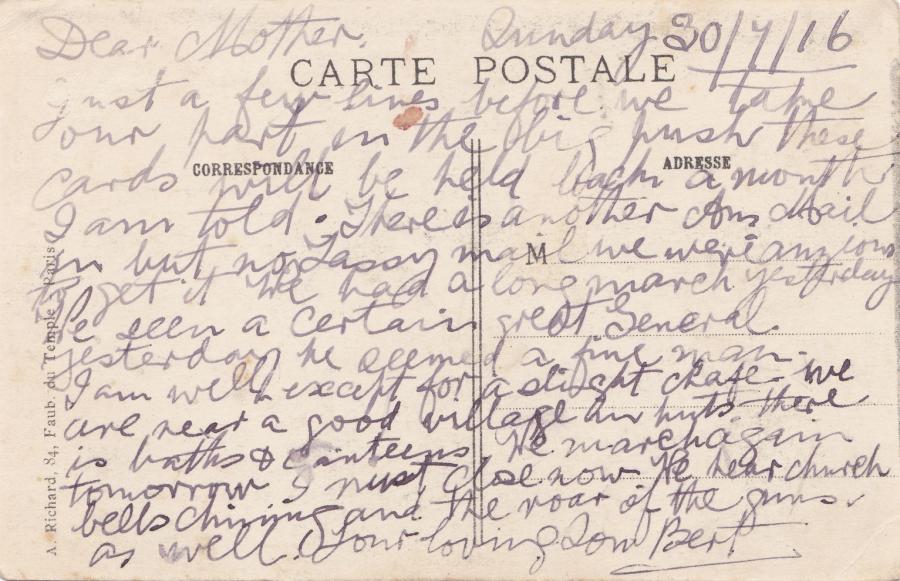 Dear Mother. Sunday 30/7/16
CARTE POSTALE
just a few lines before we take
our part in the big push these
CORRESPONDANCE
ADRESSE
cards will be held back a month
I am told. There is another Aus Mail
in but no Tassy mail we were anxious
M
to get it We had a long march yesterday
We seen a certain great General.
yesterday he seemed a fine man.
I am well except for a slight chafe. we
are near a good village in huts there
is baths & canteens We march again
tomorrow I must close now We hear church
bells chiming and the roar of the guns.
as well. Your loving Son Bert
A. Richard, 84, Faub. du Temple, Paris